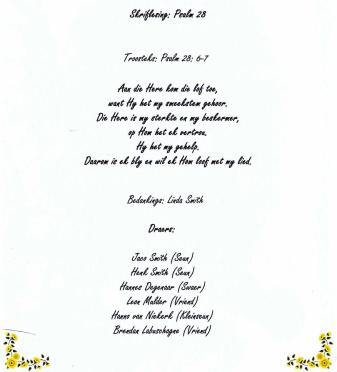 Skriflesing: Psalm 28
Troosteks: Psalm 28: 6-7
Aan die Here kom die lof toe,
want Hy het my smeekstem gehoor.
Die Here is my sterkte en my beskermer,
op Hom het ek vertrou.
Hy het my gehelp.
Daarom is ek bly en wil ek Hom loof met my lied.
Bedankings: Linda Smith
Draers:
Jaco Smith (Seun)
Henk Smith (Seun)
Hannes Degenaar (Swaer)
Leon Mulder (Vriend)
Hanno van Niekerk (Kleinseun)
Brendan Labuschagne (Vriend)